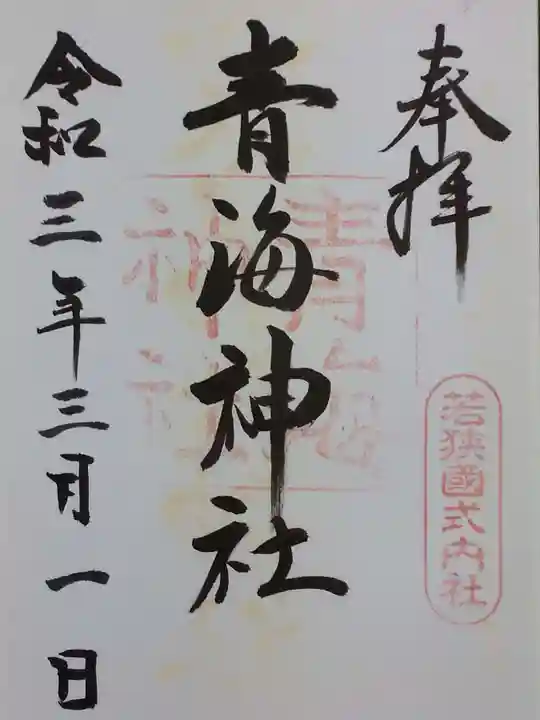 奉拝
若狭國式内社
青海神社
青海神社
令和三年三月一日